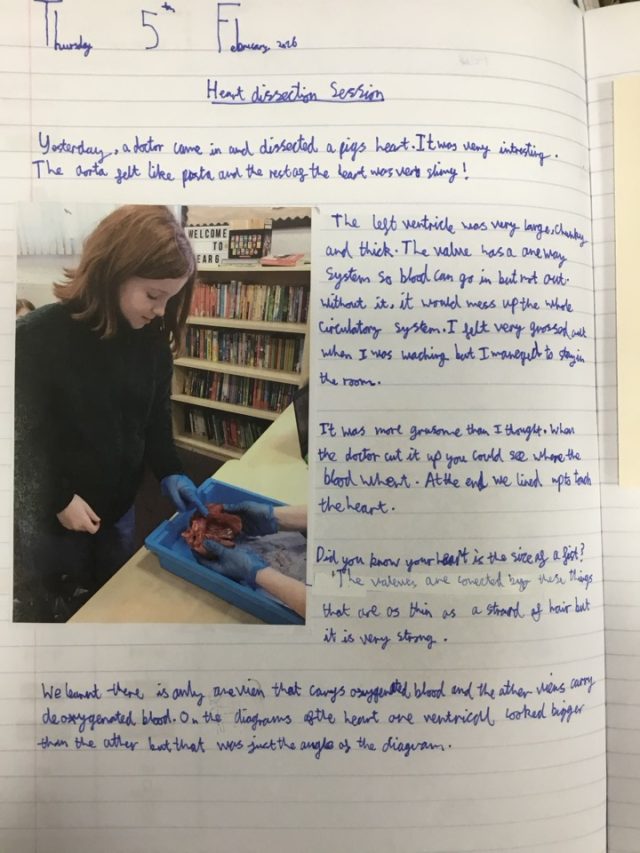 Thursday 5th February 2026
Heart dissection Session
Yesterday, a doctor came in and dissected a pigs heart. It was very intresting.
The aorta felt like pasta and the rest of the heart was very slimy!
WELCOME
TO
The left ventricle was very large, chunky
and thick. The valve has a one way
system so blood can go in but not out.
Without it, it would mess up the whole
circulatory system. I felt very grossed out
when I was waching but I managed to stay in
the room.
It was more grusome than I thought. When
the doctor cut it up you could see where the
blood whent. At the end we lined up to touch
the heart.
Did you know your heart is the size of a fist?
The valeves are conected by these things
that are as thin as a strand of hair but
it is very strong.
We learnt there is only one vien that carrys oxygenated blood and the other viens carry
deoxygenated blood. On the diagrams of the heart one ventricall looked bigger
than the other but that was just the angle of the diagram.